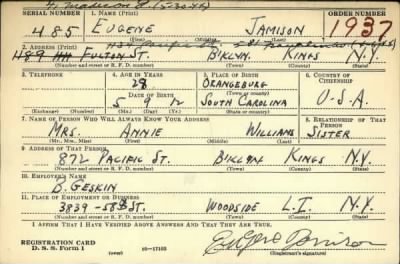 SERIAL NUMBER 1. NAME (Print) ORDER NUMBER
485 EUGENE JAMISON 1937
(First) (Middle) (Last)
2. ADDRESS (Print)
489 HH FULTON ST. BIKLYN. KINGS N.Y.
(Number and street or R. F. D. number) (Town) (County) (State)
3. TELEPHONE 4. AGE IN YEARS 5. PLACE OF BIRTH 6. COUNTRY OF CITIZENSHIP
28 ORANGEBURG
DATE OF BIRTH (Town or county)
5 9 12 SOUTH CAROLINA U-S.A.
(Exchange) (Number) (Mo.) (Day) (Yr.) (State or country)
7. NAME OF PERSON WHO WILL ALWAYS KNOW YOUR ADDRESS 8. RELATIONSHIP OF THAT PERSON
MRS. ANNIE WILLIAMS SISTER
(Mr., Mrs., Miss) (First) (Middle) (Last)
9. ADDRESS OF THAT PERSON
872 PACIFIC ST. BIKLYN KINGS N.Y.
(Number and street or R. F. D. number) (Town) (County) (State)
10. EMPLOYER'S NAME
B. GESKIN
11. PLACE OF EMPLOYMENT OR BUSINESS
3839-58 ST. WOODSIDE L.I. N.Y.
(Number and street or R. F. D. number) (Town) (County) (State)
I AFFIRM THAT I HAVE VERIFIED ABOVE ANSWERS AND THAT THEY ARE TRUE.
REGISTRATION CARD
D. S. S. Form 1 (over) 16-17105 (Registrant's signature)